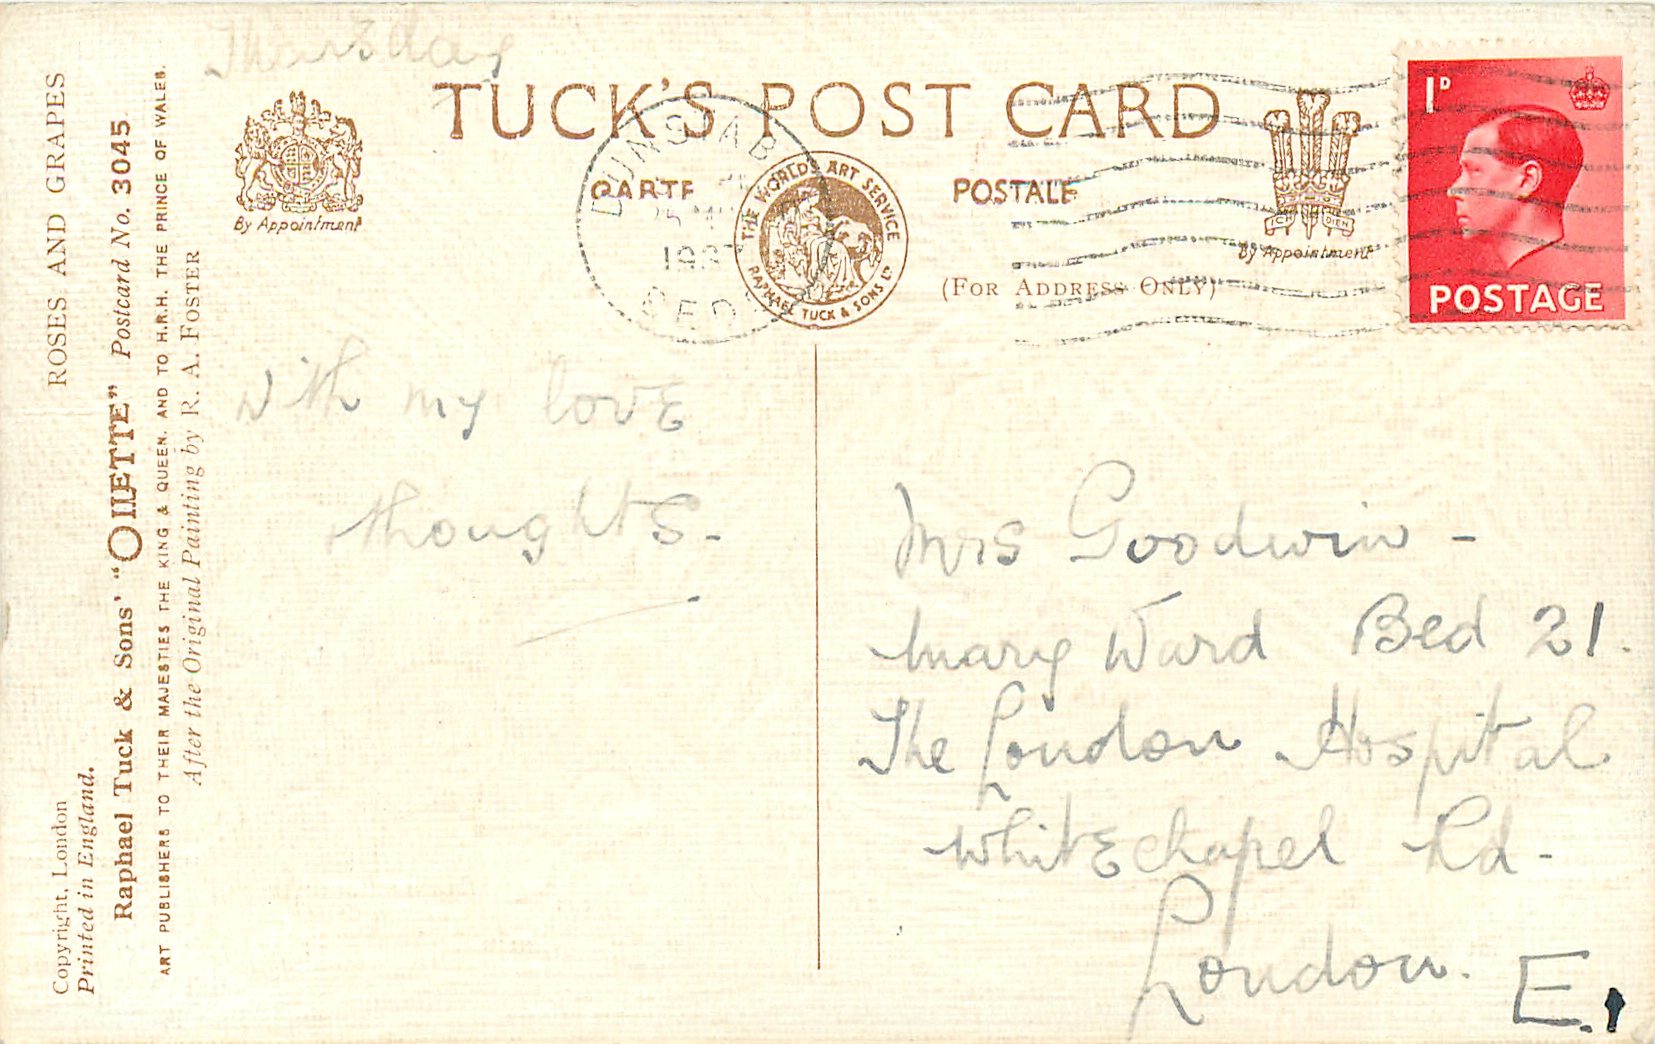 Thursday
TUCK'S POST CARD
CARTE POSTALE
(FOR ADDRESS ONLY)
By Appointment
By Appointment
ICH DIEN
THE WORLD'S ART SERVICE
RAPHAEL TUCK & SONS LTD
DUNSTAB
BED
1D
POSTAGE
With my love
thoughts-
Mrs Goodwin -
Mary Ward Bed 21.
The London Hospital
Whitechapel Rd-
London.
E.1
ROSES AND GRAPES
Copyright, London
Printed in England.
Raphael Tuck & Sons' "OILETTE" Postcard No. 3045
ART PUBLISHERS TO THEIR MAJESTIES THE KING & QUEEN, AND TO H.R.H. THE PRINCE OF WALES.
After the Original Painting by R. A. FOSTER